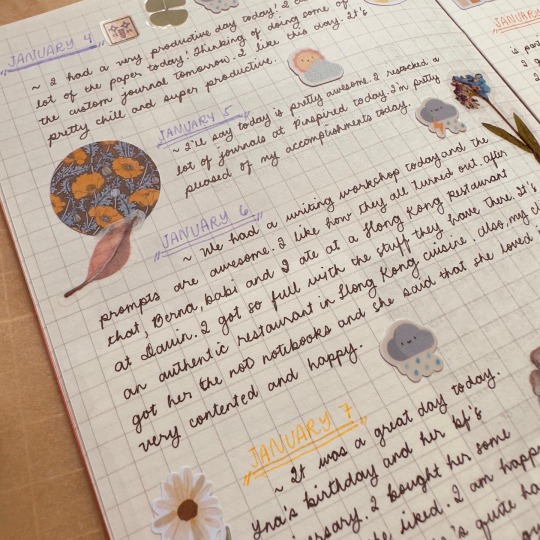 JANUARY 4
~ I had a very productive day today! I
lot of the paper today! Thinking of doing some of
the custom journal tomorrow. I like this day. It's
pretty chill and super productive.
JANUARY 5
~ I'll say today is pretty awesome. I restocked a
lot of journals at Pinspired today. I'm pretty
pleased of my accomplishments today.
JANUARY 6
~ We had a writing workshop today and the
prompts are awesome. I like how they all turned out. After
that, Berna, babi and I ate at a Hong Kong Restaurant
at . I got so full with the stuff they have there. It's
an authentic restaurant in Hong Kong cuisine. Also, my
got her the not notebooks and she said that she loved
very contented and happy.
JANUARY 7
~ It was a great day today.
Yna's birthday and her bf's
. I bought her some
she liked. I am
quite
JANUARY
is
I